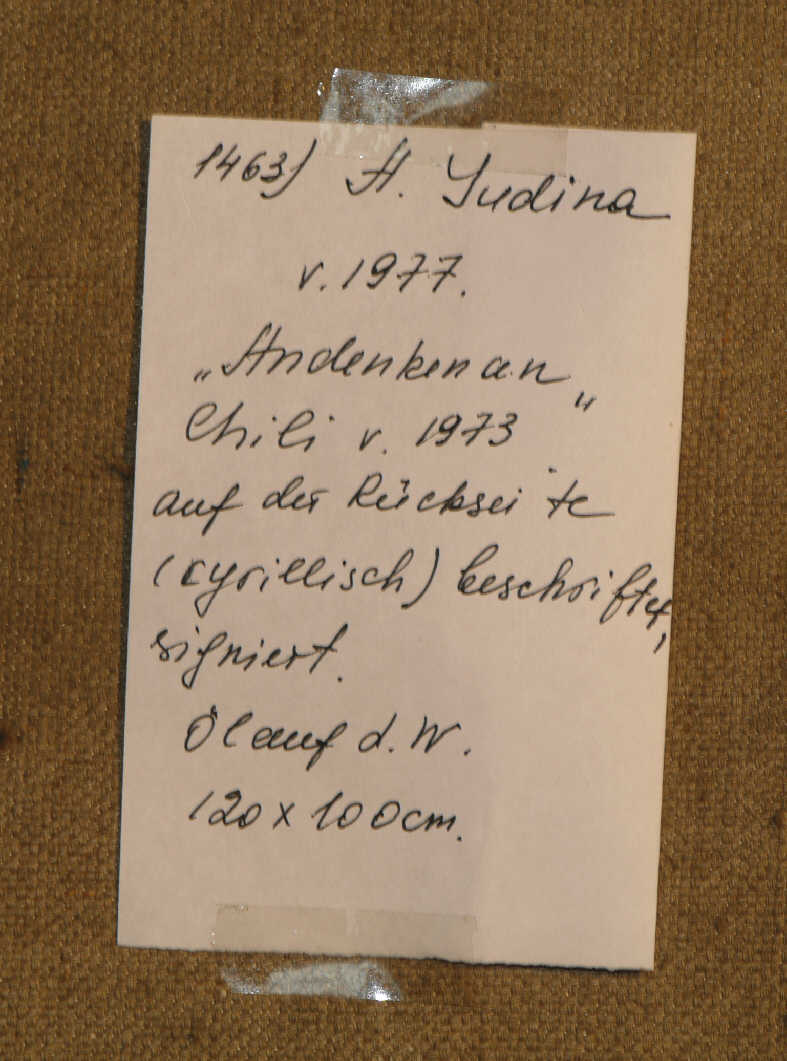 1463) A. Yudina
v. 1977.
„Andenken an
Chili v. 1973"
auf der Rückseite
(kyrillisch) beschriftet,
signiert.
Öl auf d. W.
120 x 100 cm.